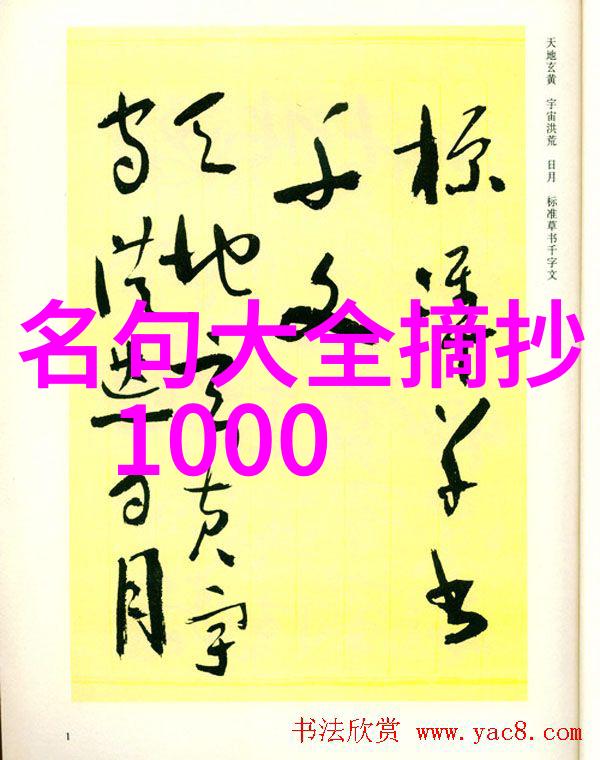 天地玄黄 宇宙洪荒 日月 标准草书千字文
標準草書
千文
天地玄黄宇
宙洪荒日月
名句大全摘抄
1000
1
书法欣赏 www.yac8.com